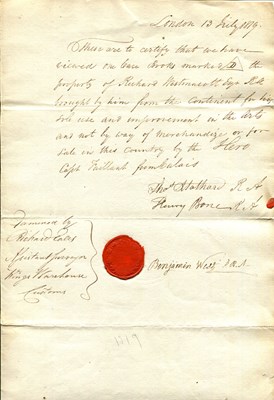 London 13 July 1819.
These are to certify that we have
viewed one Case Books marked D the
property of Richard Westmacott Esqr R.A.
brought by him from the Continent for his
sole use and improvement in the arts
and not by way of merchandize or for
Sale in this Country by the Hero
Capt from Calais
Thos Stothard R. A
Henry Bone R. A
Benjamin West P.R.A
Examined by
Richard
Assistant Surveyor
Kings Warehouse
Customs